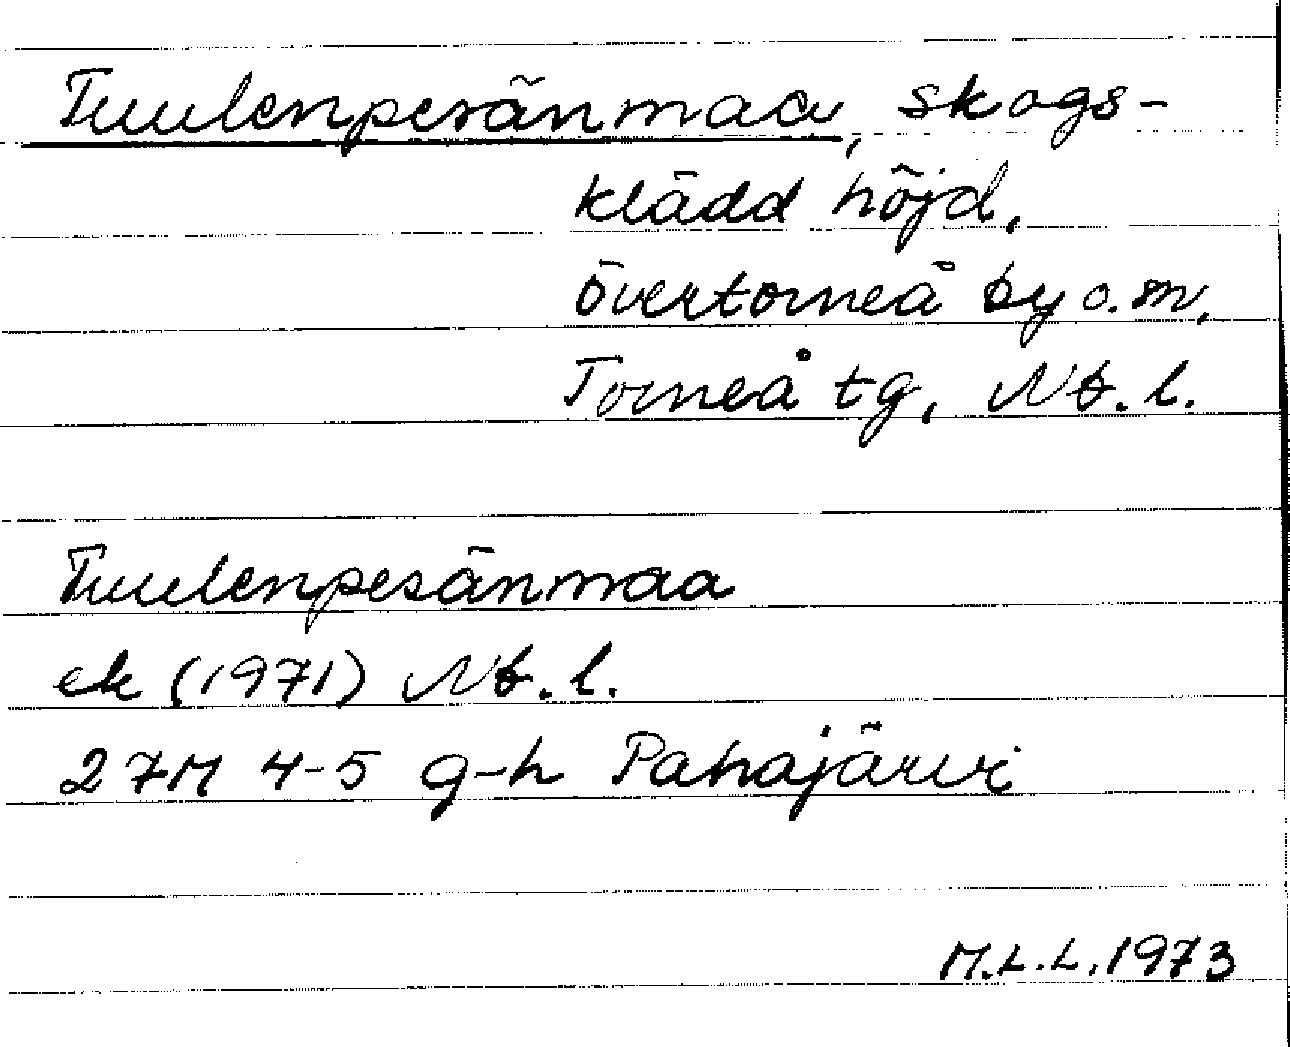 Tuulenpesänmaa, skogs-
klädd höjd,
Övertorneå by o. sn,
Torneå tg, Nb. l.
Tuulenpesänmaa
ek (1971) Nb. l.
27M 4-5 g-h Pahajärvi
M.L.L. 1973